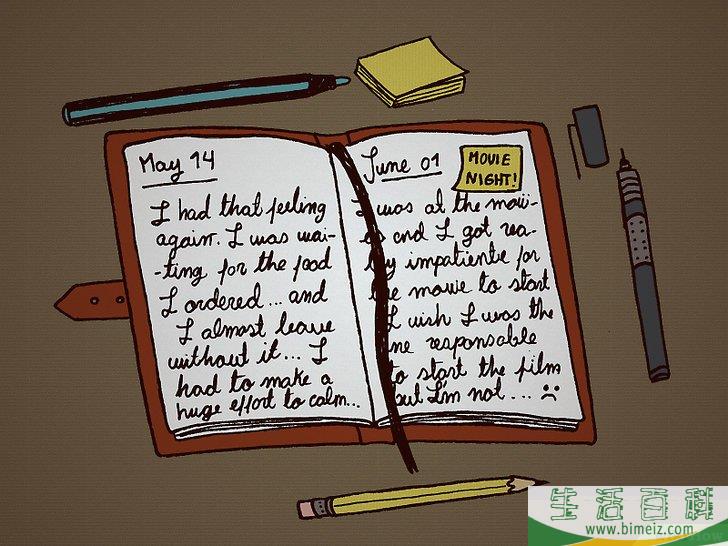 May 14
I had that feeling
again. I was wai-
-ting for the food
I ordered... and
I almost leave
without it... I
had to make a
huge effort to calm...
June 01
MOVIE
NIGHT!
I was at the movi-
es and I got rea-
lly impatiente for
the movie to start
I wish I was the
one responsable
to start the film
but I'm not... :(
生活百科
www.bimeiz.com